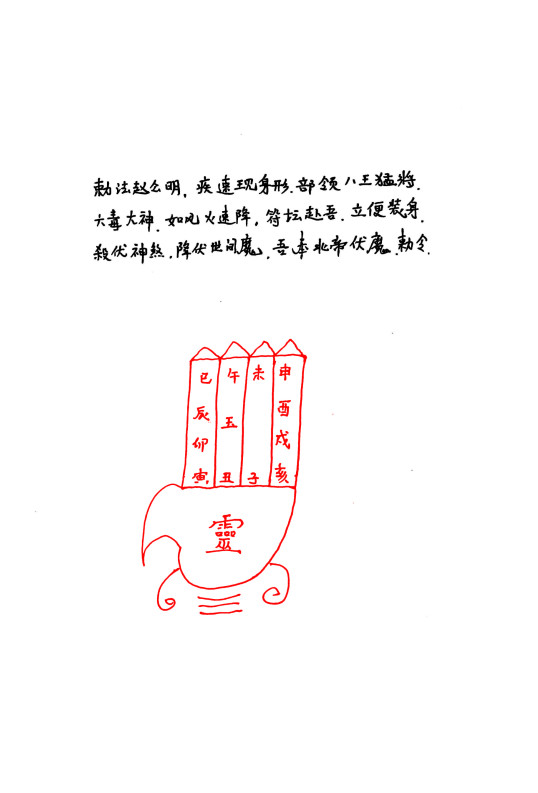 勅法赵公明，疾速现身形.部领八王猛將.
大毒大神.如风火速降，符坛赴吾.立便装身.
殺伏神煞.降伏世间魔，吾奉北帝伏魔.勅令.
巳 午 未 申
酉
辰 五
戌
卯
寅 丑 子 亥
靈